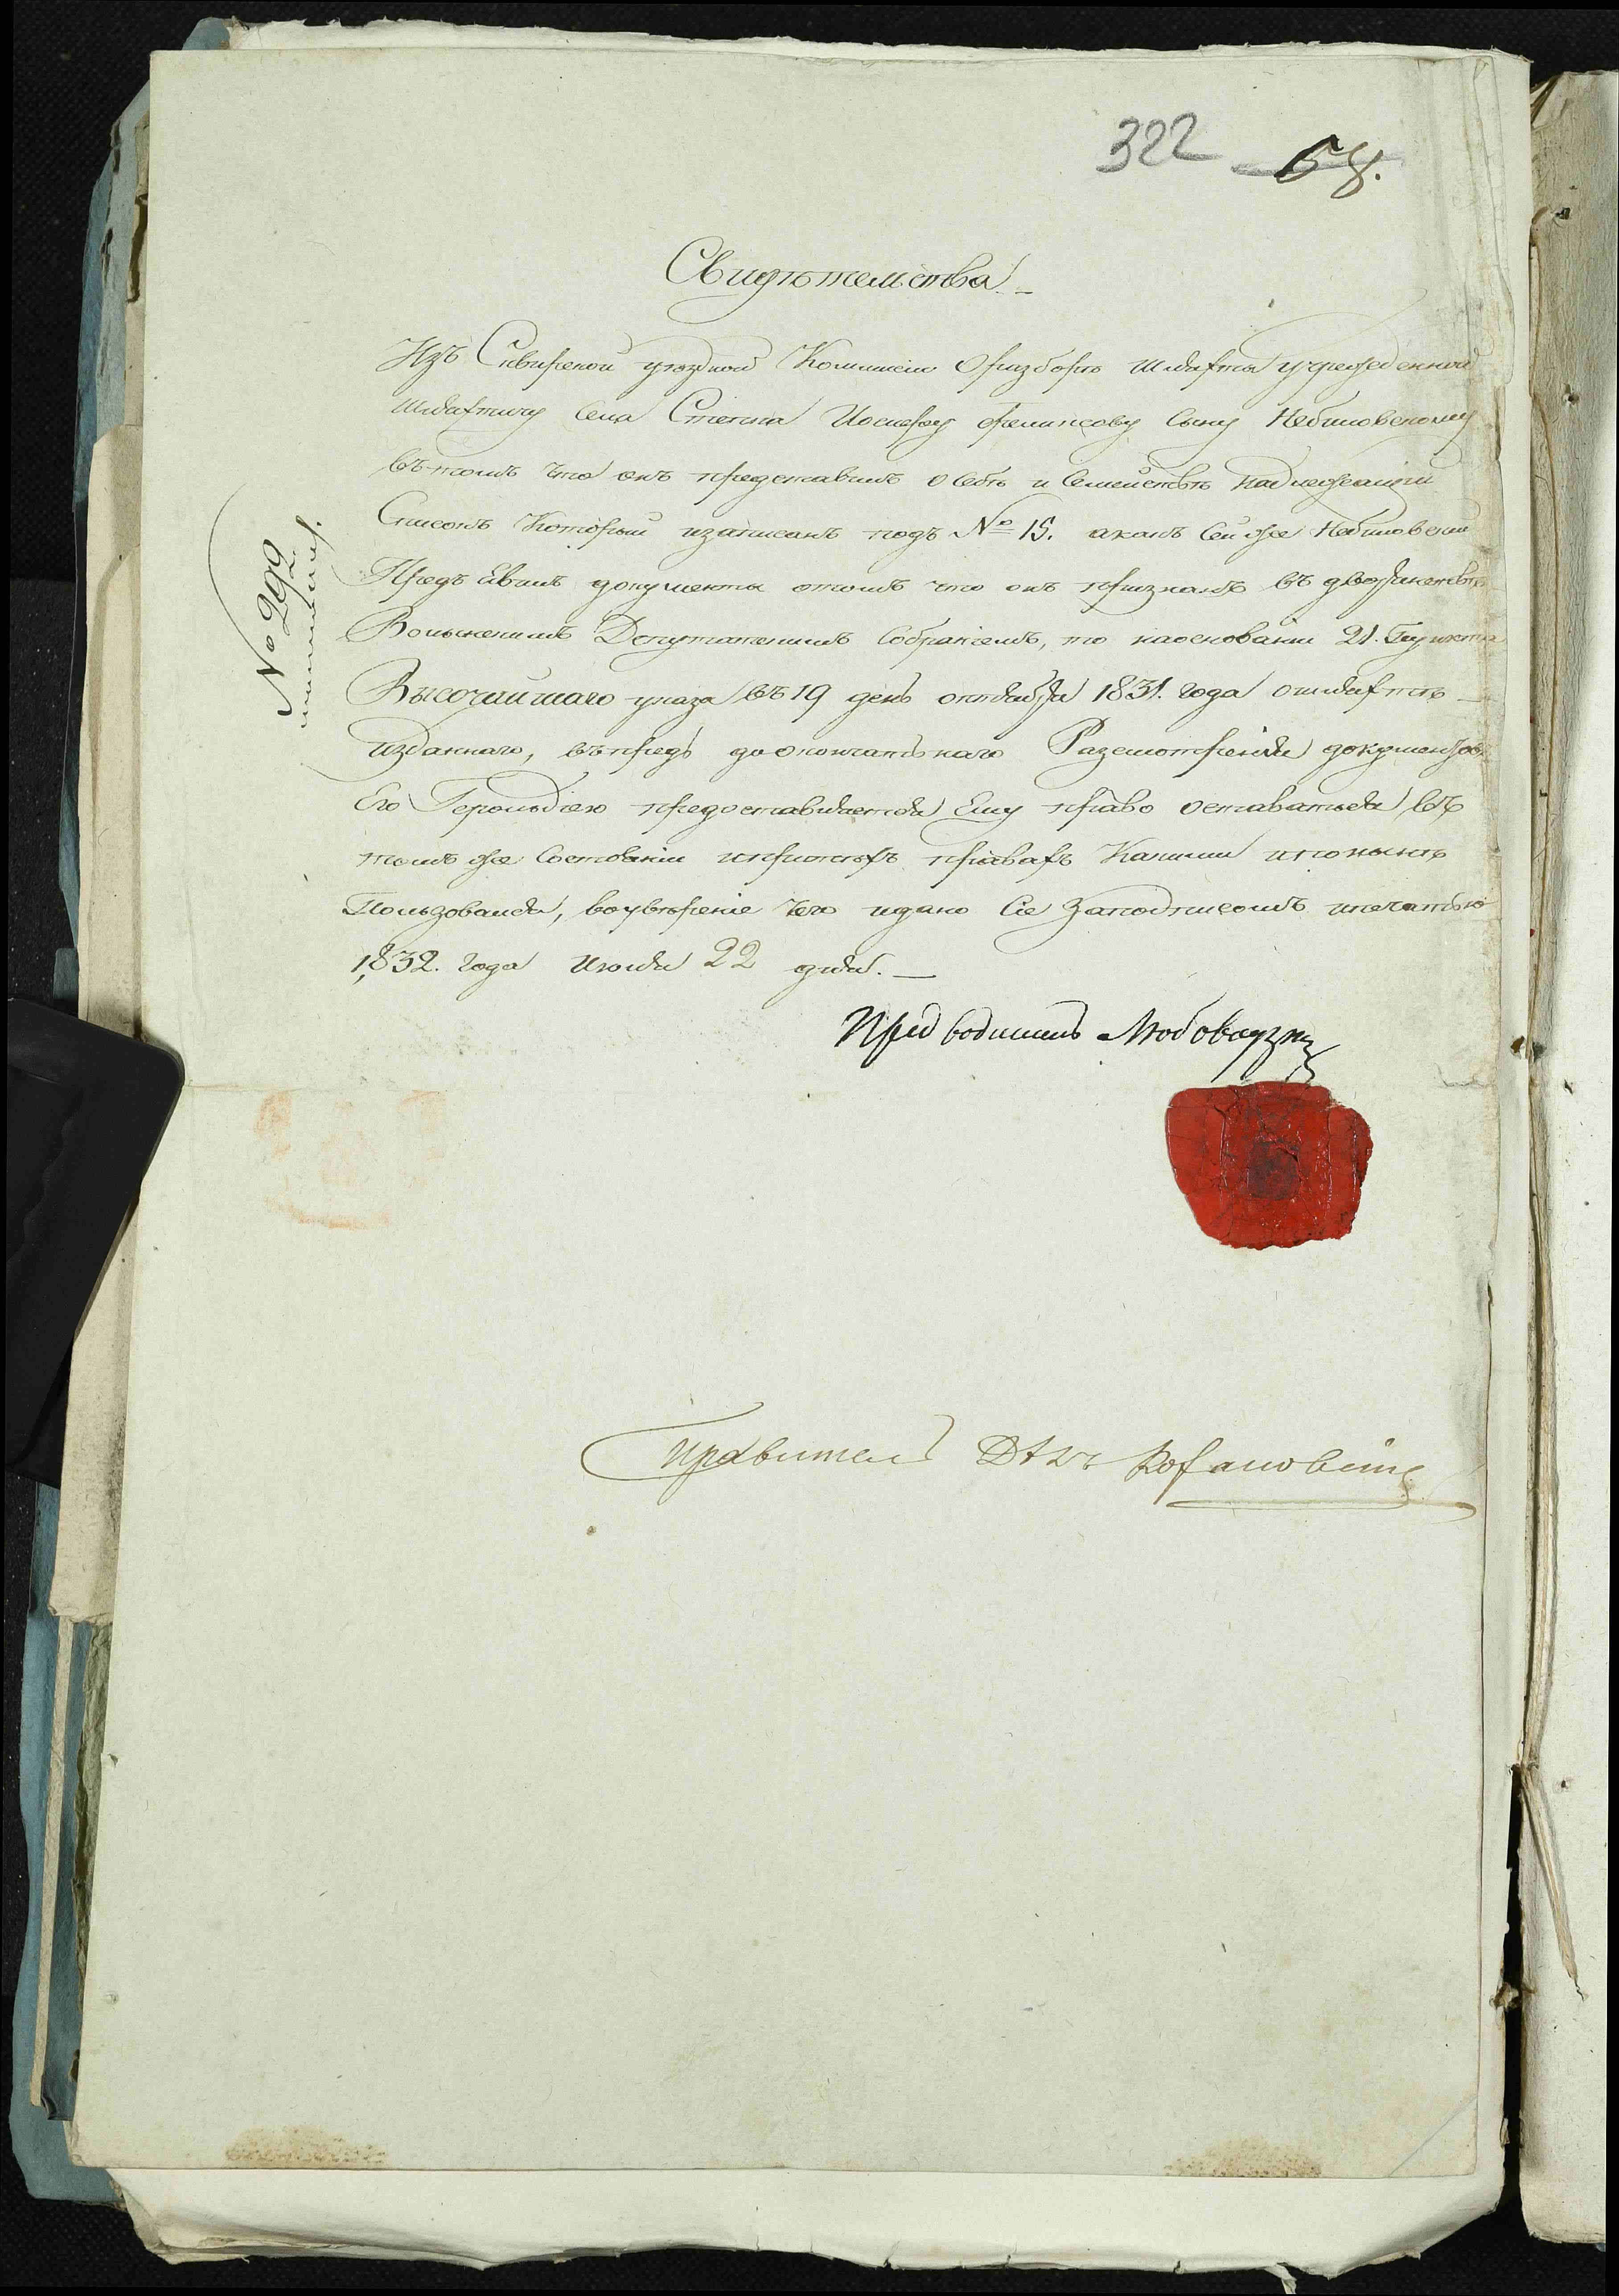 322 58.
Свидѣтельства.
Изъ Сквирской уѣздной Коммисіи Оразборѣ Шляхты учрежденной
Шляхтичу Села Степка Иосифу Феликсову Сыну Небиловскому
въ томъ что онъ представилъ О себѣ и Семействѣ Надлежащій
Списокъ Который изаписанъ подъ № 15. акакъ Сей же Небиловскій
Предъ Евилъ документы отомъ что онъ признанъ въ дворянствѣ
Волынскимъ Депутатскимъ Собраніемъ, то наоснованіи 21. Пункта
Высочайшаго указа въ 19 день октября 1831. года ошляхтѣ
изданнаго, въпредь доокончатьнаго Разсмотренія документовъ
Его Герольдіею предоставляется Ему право Оставаться въ
томъ же Состояніи ипритѣхъ правахъ Какими ипонынѣ
Пользовался, воувѣреніе чего идано Сіе Заподписомъ ипечатью
1832. года Июля 22 дня.
№ 292
Предводитель
Правитель Дѣлъ